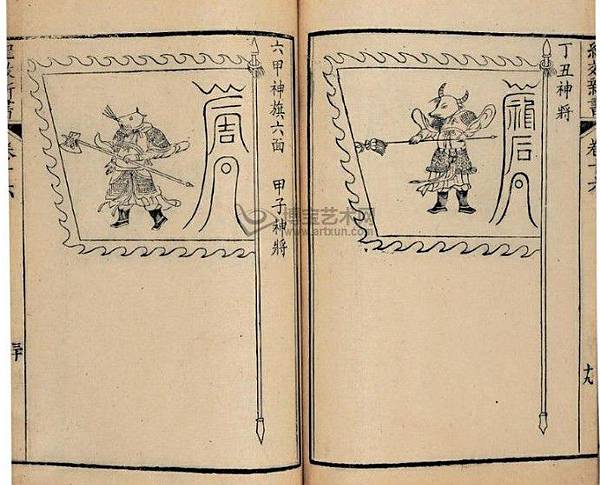 紀效新書
卷十六
十九
丁丑神將
六甲神旗六面 甲子神將
紀效新書
卷十六
二十
博宝艺术网
www.artxun.com